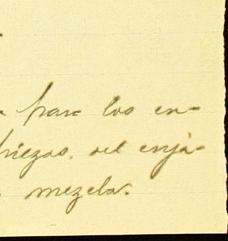 para los en-
piezas. del enja-
mezcla.